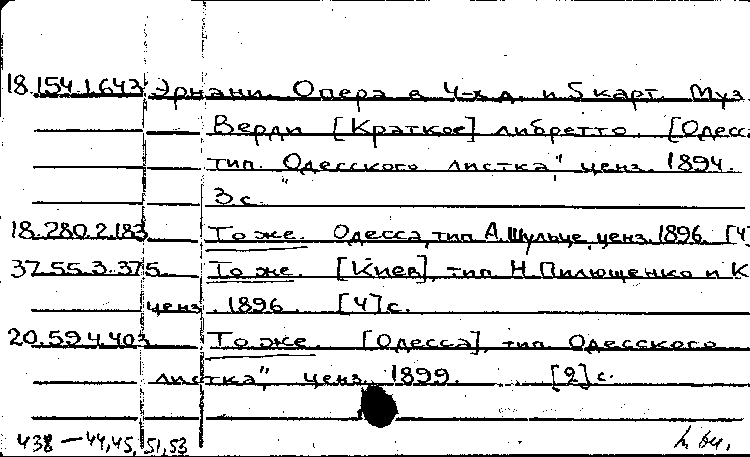 18.154.1.643 Эрнани. Опера в 4-х д. и 5 карт. Муз.
Верди [Краткое] либретто. [Одесса
тип. "Одесского листка", ценз. 1894.
3 с.
18.280.2.183 То же. Одесса, тип. А. Шульце, ценз. 1896. [4]
37.55.3.375 То же. [Киев], тип. Н. Пилющенко и К
ценз. 1896. [4] с.
20.59 4.403 То же. [Одесса], тип. Одесского
листка", ценз. 1899. [2] с.
438 — 44,45, 51,53